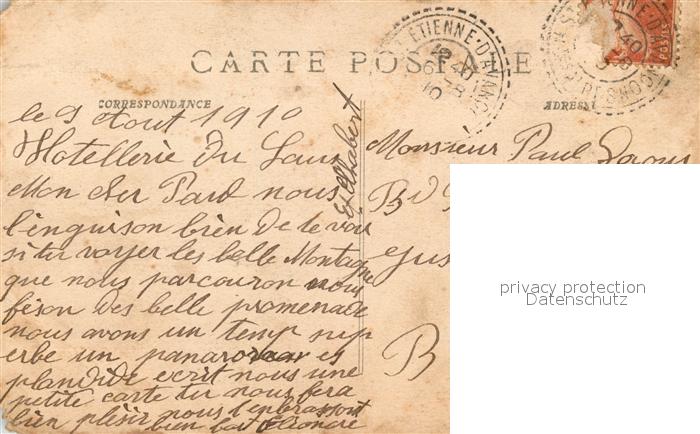 CARTE POSTALE
CORRESPONDANCE
ADRESSE
le 9 Aout 1910
Hotellerie du Laus
Mon cher Paul nous
l'enguison bien de te voir
si tu voyer les belle Montagne
que nous parcouron nous
feson des belle promenade
nous avons un temp sup
erbe un panarorar es
plandide ecrit nous une
petite carte tu nous fera
bien plesir nous t'enbrassont
bien fort Elionore
Monsieur Paul
Bd
B
privacy protection
Datenschutz